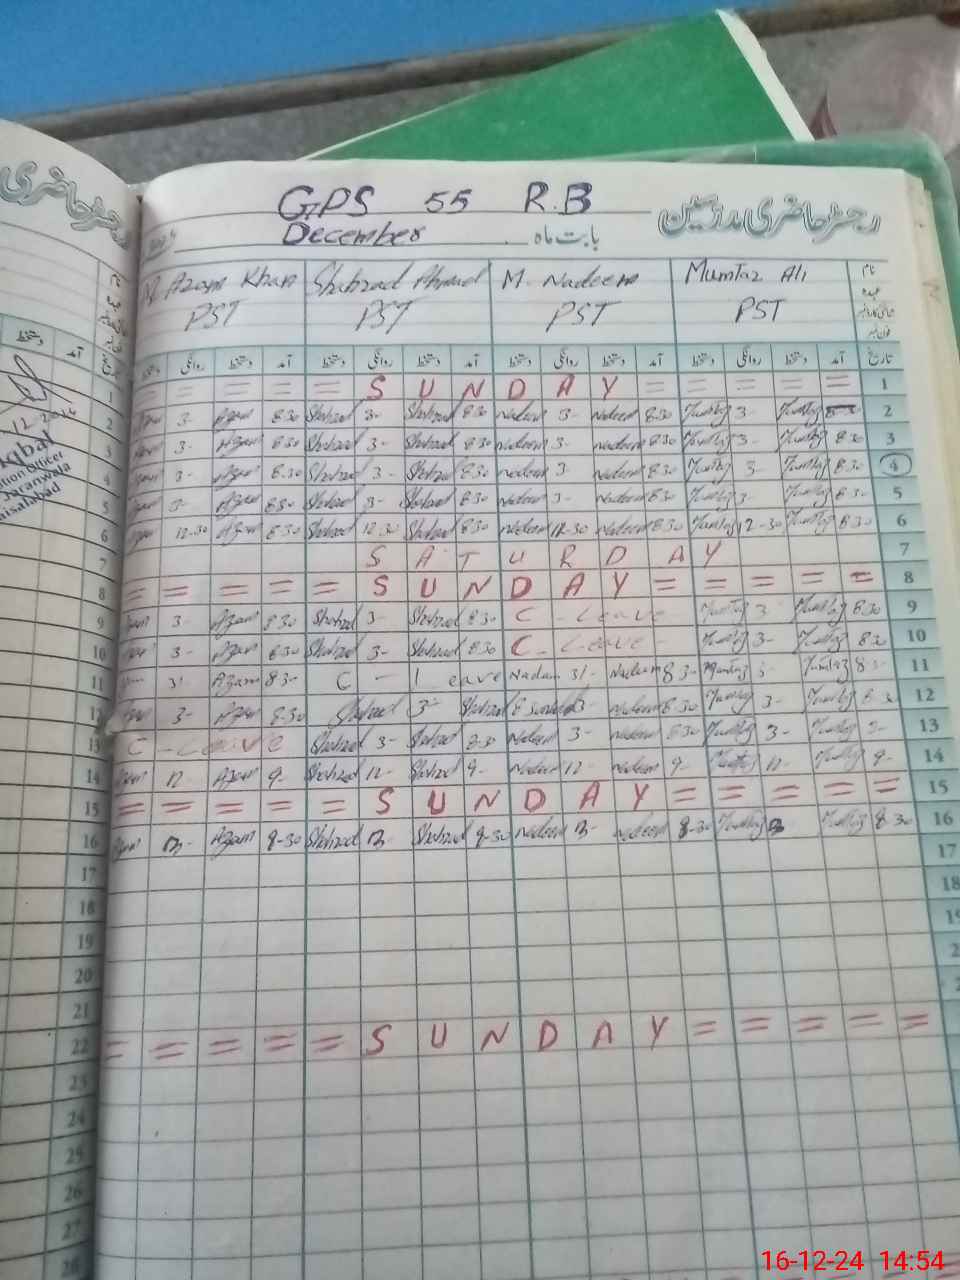 GPS 55 R.B
رجسٹر حاضری مدرسین
December بابت ماہ
M Azam Khan Shahzad Ahmad M. Nadeem Mumtaz Ali نام
PST PST PST PST عہدہ
دستخط روانگی دستخط آمد دستخط روانگی دستخط آمد دستخط روانگی دستخط آمد دستخط روانگی دستخط آمد تاریخ
= = = = S U N D A Y = = = = = 1
Azam 3- Azam 8.30 Shahzad 3- Shahzad 8.30 Nadeem 3- Nadeem 8.30 Mumtaz 3- Mumtaz 2
Azam 3- Azam 8.30 Shahzad 3- Shahzad 8.30 Nadeem 3- Nadeem 8.30 Mumtaz 3- Mumtaz 8.30 3
Azam 3- Azam 8.30 Shahzad 3- Shahzad 8.30 Nadeem 3- Nadeem 8.30 Mumtaz 3- Mumtaz 8.30 4
Azam 3- Azam 8.30 Shahzad 3- Shahzad 8.30 Nadeem 3- Nadeem 8.30 Mumtaz 3- Mumtaz 8.3- 5
Azam 12.30 Azam 8.30 Shahzad 12.30 Shahzad 8.30 Nadeem 12.30 Nadeem 8.30 Mumtaz 12-30 Mumtaz 8.30 6
S A T U R D A Y 7
= = = = = S U N D A Y = = = = = 8
Azam 3- Azam 8.30 Shahzad 3- Shahzad 8.30 C - Leave Mumtaz 3- Mumtaz 8.30 9
Azam 3- Azam 8.30 Shahzad 3- Shahzad 8.30 C - Leave - Mumtaz 3- Mumtaz 8.30 10
Azam 3- Azam 8.3- C - Leave Nadeem 3/- Nadeem 8.3- Mumtaz 3- Mumtaz 8.3- 11
Azam 3- Azam 8.30 Shahzad 3- Shahzad 8.30 3- Nadeem 8.30 Mumtaz 3- Mumtaz 8.3- 12
C - Leave Shahzad 3- Shahzad 8.30 Nadeem 3- Nadeem 8.30 Mumtaz 3- Mumtaz 13
Azam 12- Azam 9- Shahzad 12- Shahzad 9- Nadeem 12- Nadeem 9- Mumtaz 12- Mumtaz 9- 14
= = = = = S U N D A Y = = = = = 15
Azam Azam 8-30 Shahzad Shahzad 8.30 Nadeem Nadeem 8-30 Mumtaz Mumtaz 8.30 16
17
18
19
20
21
= = = = = S U N D A Y = = = = = 22
23
24
25
26
27
28
12-2024
Iqbal
Officer
Jaranwala
Faisalabad
16-12-24 14:54